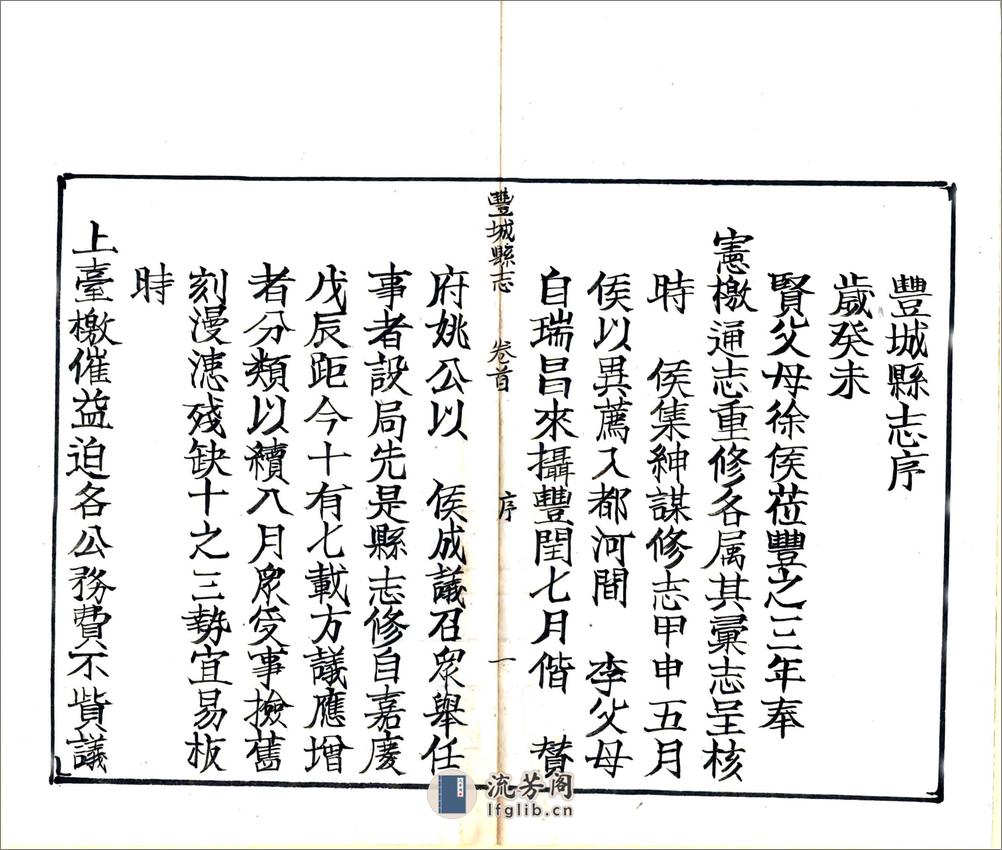 豐城縣志序
歲癸未
賢父母徐侯莅豐之三年奉
憲檄通志重修各属其彚志呈核
時 侯集紳謀修志甲申五月
侯以異薦入都河間 李父母
自瑞昌來攝豐閏七月偕 賛
豐城縣志 卷首 序 一
府姚公以 侯成議召眾舉任
事者設局先是縣志修自嘉慶
戊辰距今十有七載方議應增
者分類以續八月眾受事撿舊
刻漫漶残缺十之三勢宜易板
時
上臺檄催益迫各公務費不貲議
流芳阁
lfglib.cn